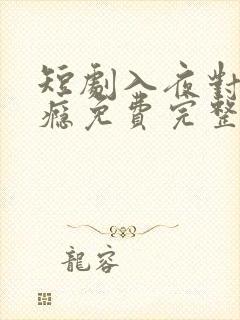 短劇入夜對
癮免費完整
龍容